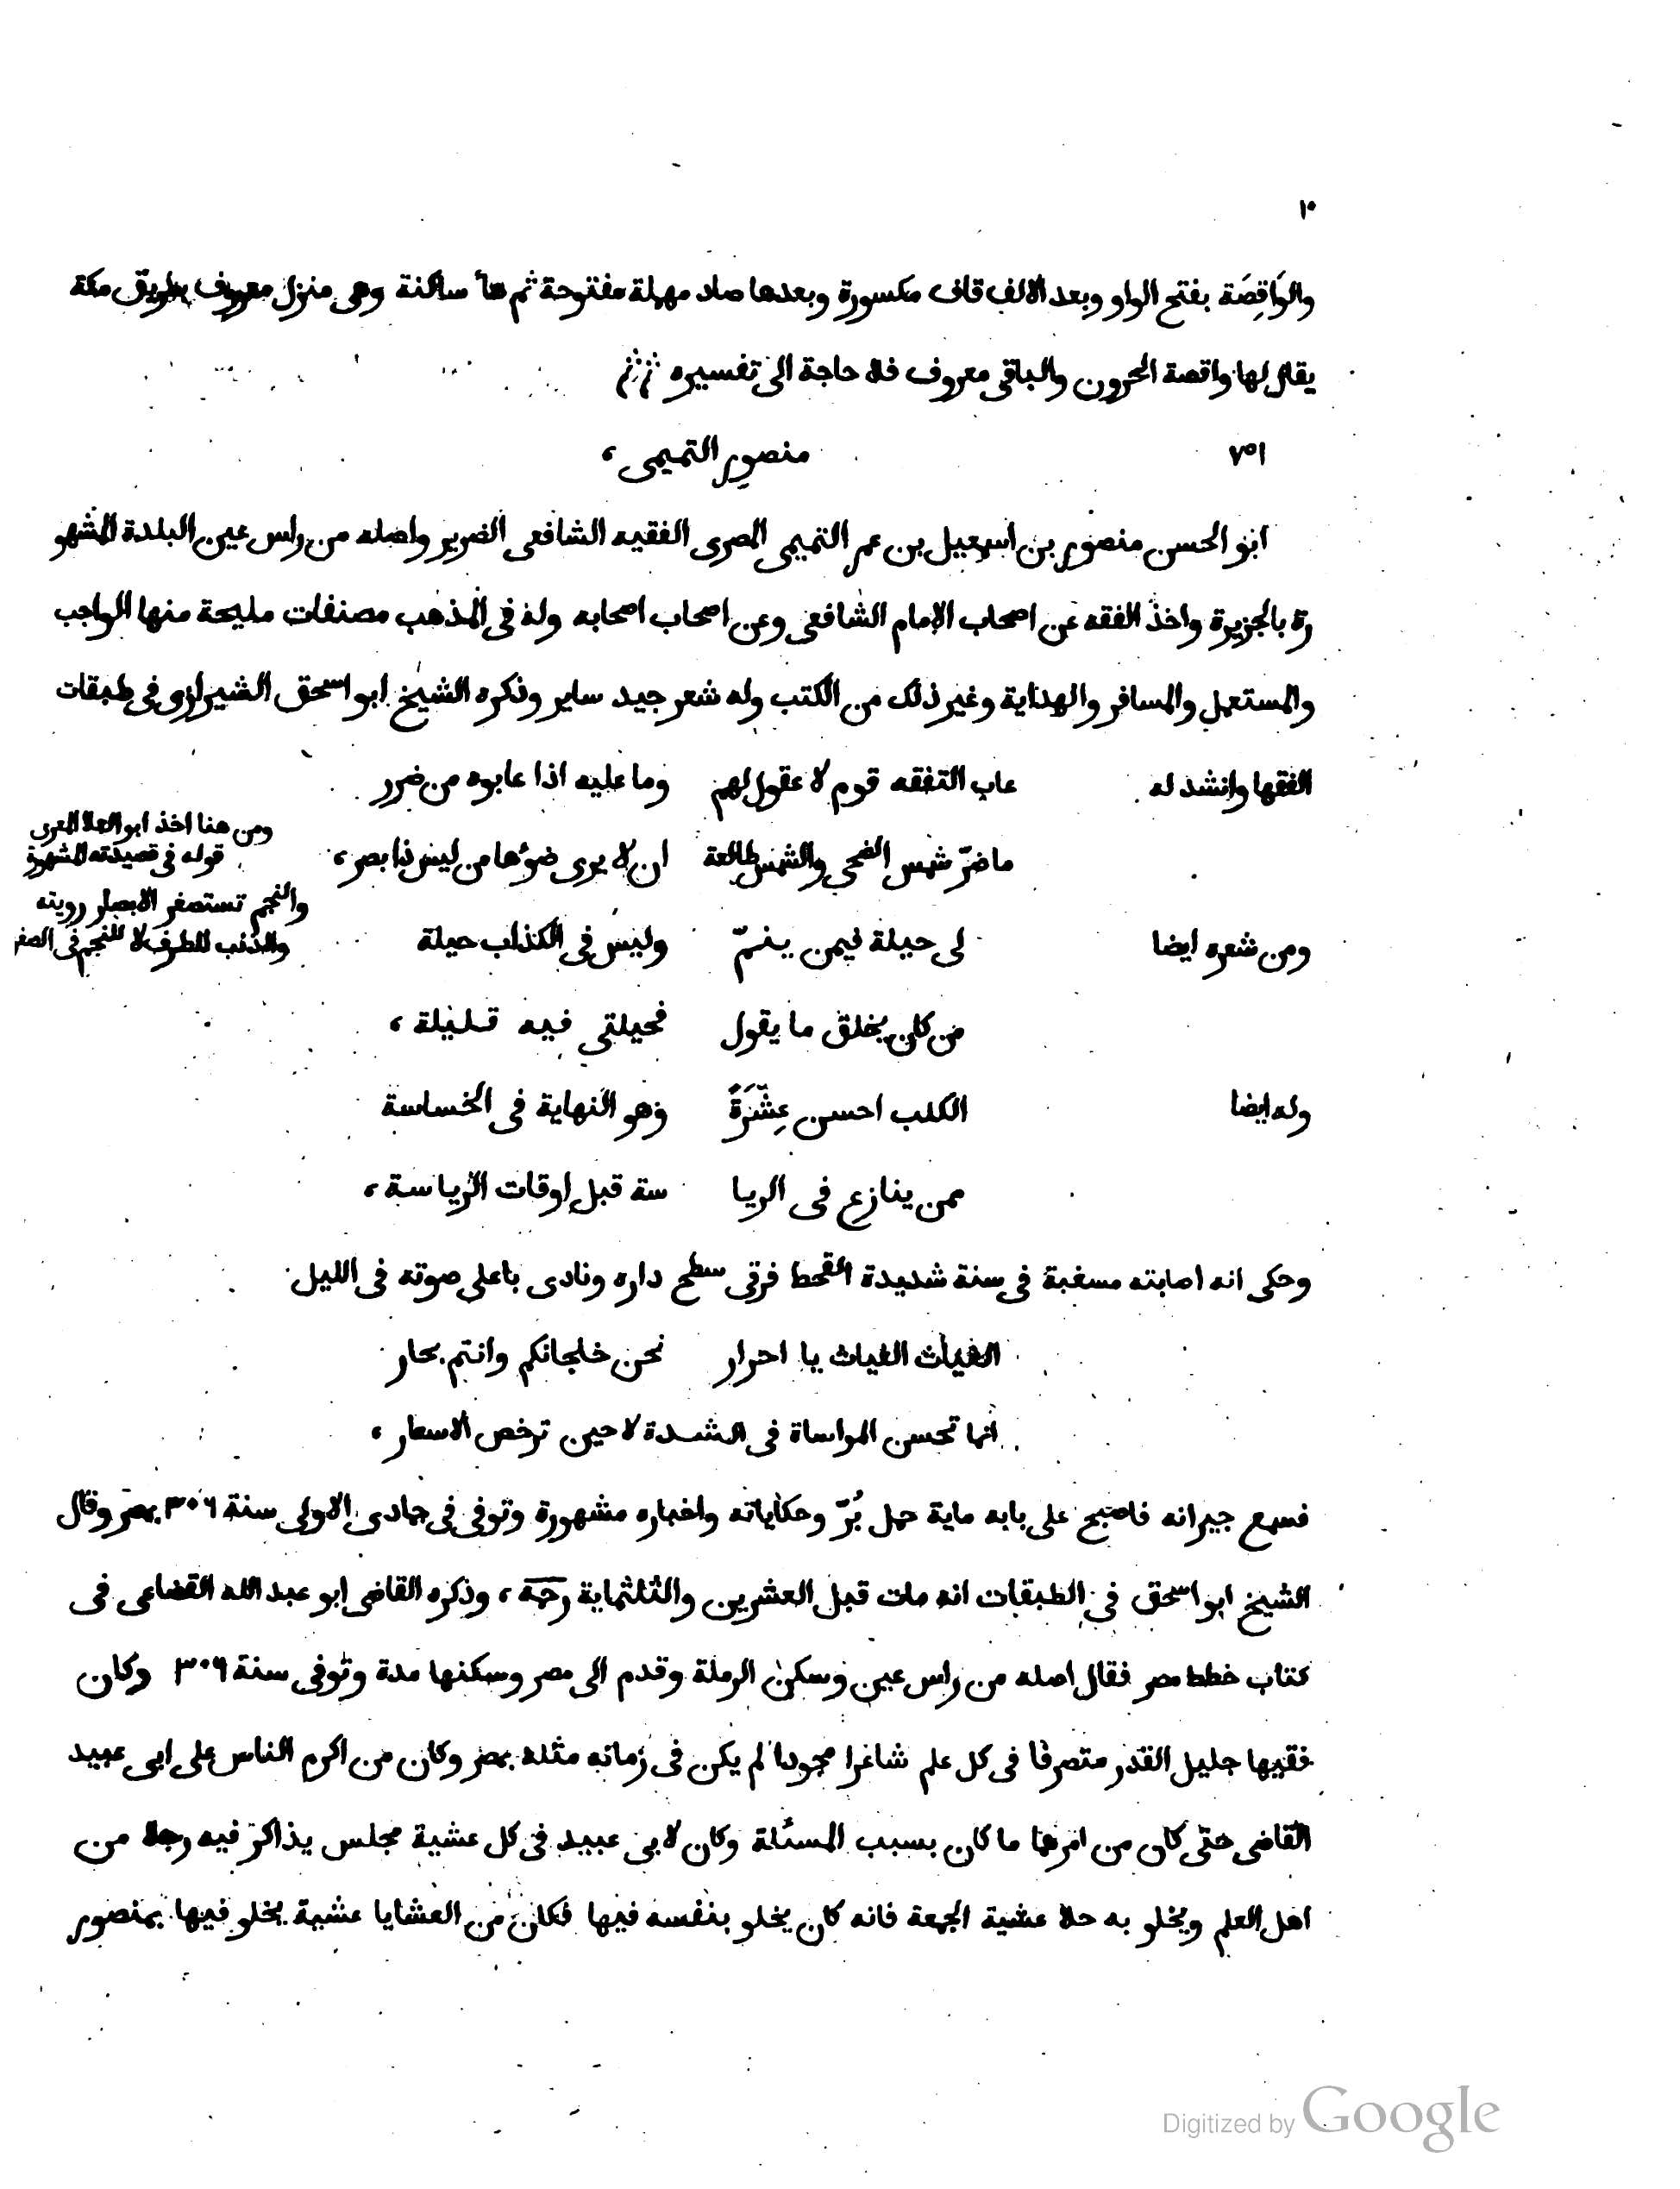 ١٠
والوَاقِصَة بفتح الواو وبعد الالف قاف مكسورة وبعدها صاد مهملة مفتوحة ثم هآ ساكنة وهى منزل معروف بطريق مكة
يقال لها واقصة الحرون والباقى معروف فلا حاجة الى تفسيره
٧٥١ منصور التميمى ،
ابو الحسن منصور بن اسمعيل بن عمر التميمى المصرى الفقيه الشافعى الضرير واصله من راس عين البلدة المشهو
رة بالجزيرة واخذ الفقه عن اصحاب الإمام الشافعى وعن اصحاب اصحابه وله فى المذهب مصنفات مليحة منها الواجب
والمستعمل والمسافر والهداية وغير ذلك من الكتب وله شعر جيد ساير وذكره الشيخ ابو اسحق الشيرازى فى طبقات
الفقها وانشد له عاب التفقه قوم لا عقول لهم وما عليه اذا عابوه من ضرر
ما ضرّ شمس الضحى والشمس طالعة ان لا يرى ضوءها من ليس ذا بصر ،
ومن هنا اخذ ابو العلا المعرى
قوله فى قصيدته المشهورة
والنجم تستصغر الابصار رويته
والذنب للطرف لا للنجم فى الصغر
ومن شعره ايضا لى حيلة فيمن ينمّ وليس فى الكذاب حيلة
من كان يخلق ما يقول فحيلتى فيه قليلة ،
وله ايضا الكلب احسن عِشْرَةً وهو النهاية فى الخساسة
ممن ينازع فى الريا سة قبل اوقات الرياسة ،
وحكى انه اصابته مسغبة فى سنة شديدة القحط فرقى سطح داره ونادى باعلى صوته فى الليل
الغياث الغياث يا احرار نحن خلجانكم وانتم بحار
انما تحسن المواساة فى الشدة لا حين ترخص الاسعار ،
فسمع جيرانه فاصبح على بابه ماية حمل بُرّ وحكاياته واخباره مشهورة وتوفى فى جمادى الاولى سنة ٣٠٦ بمصر وقال
الشيخ ابو اسحق فى الطبقات انه مات قبل العشرين والثلثماية رحه ، وذكره القاضى ابو عبد الله القضاعى فى
كتاب خطط مصر فقال اصله من راس عين وسكن الرملة وقدم الى مصر وسكنها مدة وتوفى سنة ٣٠٦ وكان
فقيها جليل القدر متصرفا فى كل علم شاعرا مجودا لم يكن فى زمانه مثله بمصر وكان من اكرم الناس على ابى عبيد
القاضى حتى كان من امرهما ما كان بسبب المسئلة وكان لابى عبيد فى كل عشية مجلس يذاكر فيه رجلا من
اهل العلم ويخلو به حلا عشية الجمعة فانه كان يخلو بنفسه فيها فكان من العشايا عشية يخلو فيها بمنصور
Digitized by Google